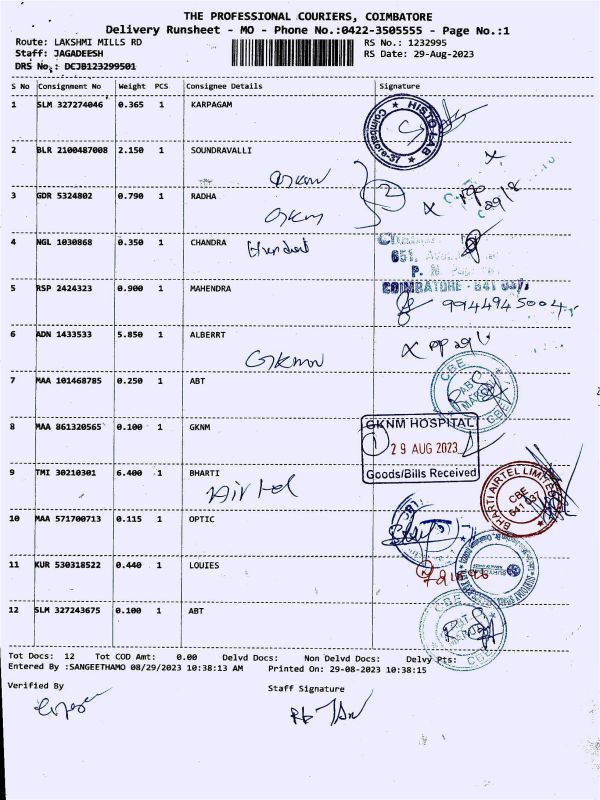 THE PROFESSIONAL COURIERS, COIMBATORE
Delivery Runsheet - MO - Phone No.:0422-3505555 - Page No.:1
Route: LAKSHMI MILLS RD RS No.: 1232995
Staff: JAGADEESH RS Date: 29-Aug-2023
DRS No.: DCJB123299501
S No Consignment No Weight PCS Consignee Details Signature
1 SLM 327274046 0.365 1 KARPAGAM
HISTO LAB Coimbatore-37
2 BLR 2100487008 2.150 1 SOUNDRAVALLI
3 GDR 5324802 0.790 1 RADHA
4 NGL 1030868 0.350 1 CHANDRA
651,
P. N.
COIMBATORE - 641 037.
5 RSP 2424323 0.900 1 MAHENDRA
9944945004
6 ADN 1433533 5.850 1 ALBERRT
GKNM
7 MAA 101468785 0.250 1 ABT
CBE
8 MAA 861320565 0.100 1 GKNM
GKNM HOSPITAL
29 AUG 2023
Goods/Bills Received
9 TMI 30210301 6.400 1 BHARTI
Airtel
BHARTI AIRTEL LIMITED
CBE
641 037
10 MAA 571700713 0.115 1 OPTIC
11 KUR 530318522 0.440 1 LOUIES
12 SLM 327243675 0.100 1 ABT
CBE
Tot Docs: 12 Tot COD Amt: 0.00 Delvd Docs: Non Delvd Docs: Delvy Pts:
Entered By :SANGEETHAMO 08/29/2023 10:38:13 AM Printed On: 29-08-2023 10:38:15
Verified By Staff Signature